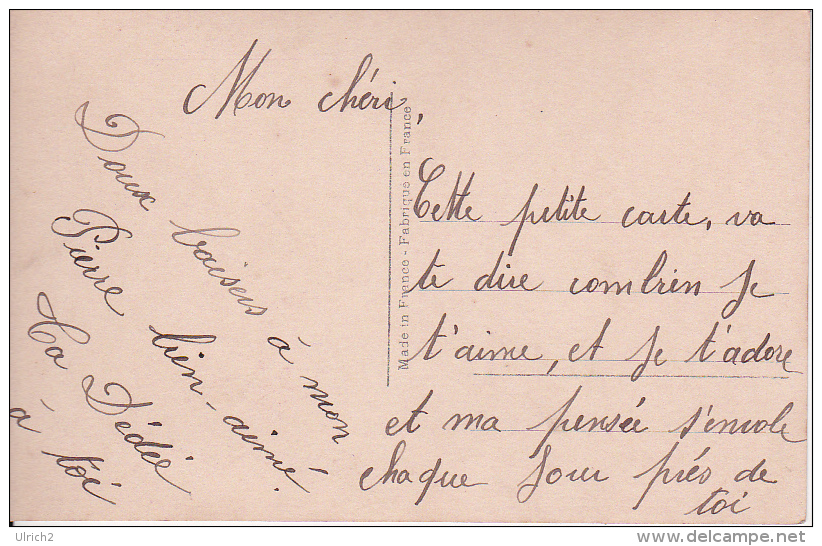 Mon chéri,
Cette petite carte, va
te dire combien je
t'aime, et je t'adore
et ma pensée s'envole
chaque jour près de
toi
Doux baisers à mon
Pierre bien-aimé.
Ta Dédée
à toi
Made in France - Fabriqué en France
Ulrich2
delcampe.net